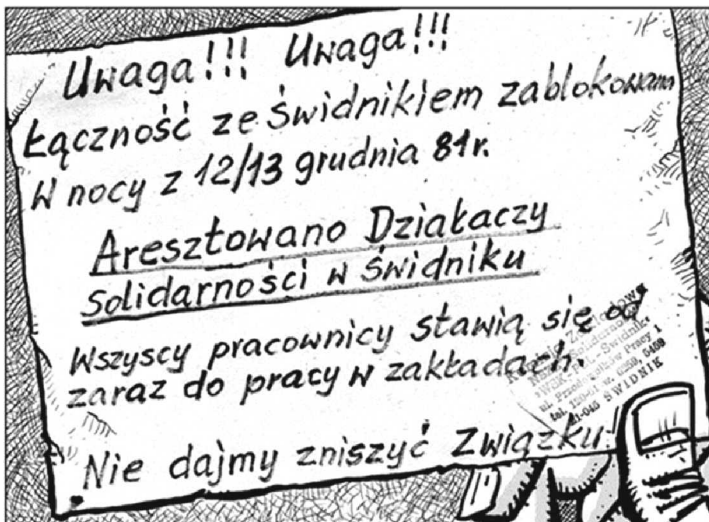 Uwaga!!! Uwaga!!!
Łączność ze Świdnikiem zablokowana
W nocy z 12/13 grudnia 81r.
Aresztowano Działaczy
Solidarności w Świdniku
Wszyscy pracownicy stawią się od
zaraz do pracy w zakładach.
Nie dajmy zniszyć Związku
Świdnik
Pracy 1
tel.
21-045 ŚWIDNIK